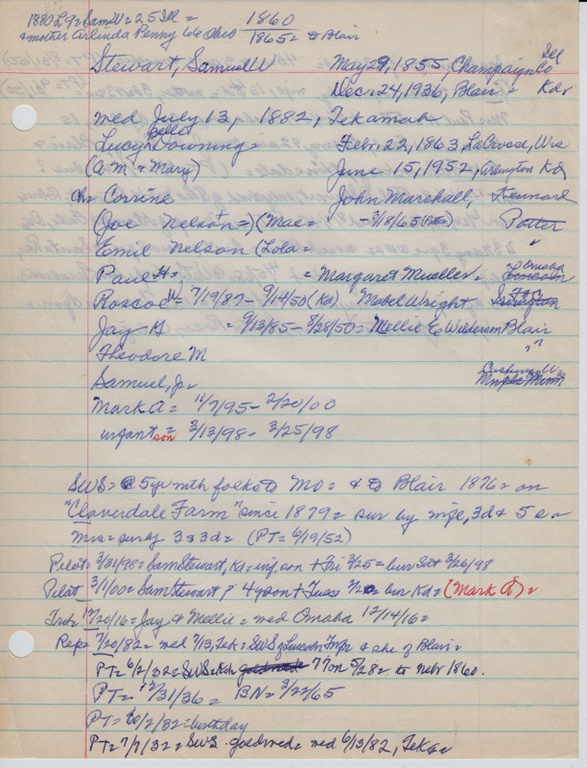 1880 L9 = Sam W = 25 Ill = 1860
& mother Arlinda Penny 66 Ohio 1865 = to Blair
Stewart, Samuel W May 29, 1855, Champaign Co Ill
Dec. 24, 1936, Blair = Kd
med July 13, 1882, Tekamah
Lucy Belle Downing = Febr. 22, 1863, LaCrosse, Wis
(A M & Mary) June 15, 1952, Arlington Kd
Ch = Corrine John Marshall, Kennard
(Joe Nelson =) (Mae = - 3/18/65 Potter
Emil Nelson (Lola = "
Paul H = = Margaret Mueller = Omaha
Roscoe W = 7/19/87 - 9/14/50 (Kd) Mabel Wright
Jay G = 9/13/85 - 8/28/50 = Mellie E Wilkerson Blair
Theodore M "
Samuel, Jr = Mnpls Minn
Mark A = 11/7/95 - 2/20/00
infant son = 3/13/98 - 3/25/98
SWS = @ 5 yr with folks to Mo = & to Blair 1876 = on
"Cloverdale Farm" since 1879 = sur by wife, 3d & 5 s =
Mrs = surby 3 s 3d = (PT = 6/19/52)
Pilot = 3/31/98 = Sam Stewart, Kd = inf. son + Fri 3/25 = bur Sat 3/26/98
Pilot 3/1/00 = Sam Stewart 4 yr son + Tues bur Kd = (Mark A) =
Trib 12/20/16 = Jay & Mellie = med Omaha 12/14/16 =
Rep = 7/20/82 = med 7/13, Tek = SWS & she of Blair =
PT = 6/2/32 = SWS = Kd 77 on 5/28 = to Nebr 1860.
PT = 12/31/36 = BN = 3/22/65
PT = 6/2/32 = birthday
PT = 7/7/32 = SWS = goldwed = med 6/13/82, Tek =